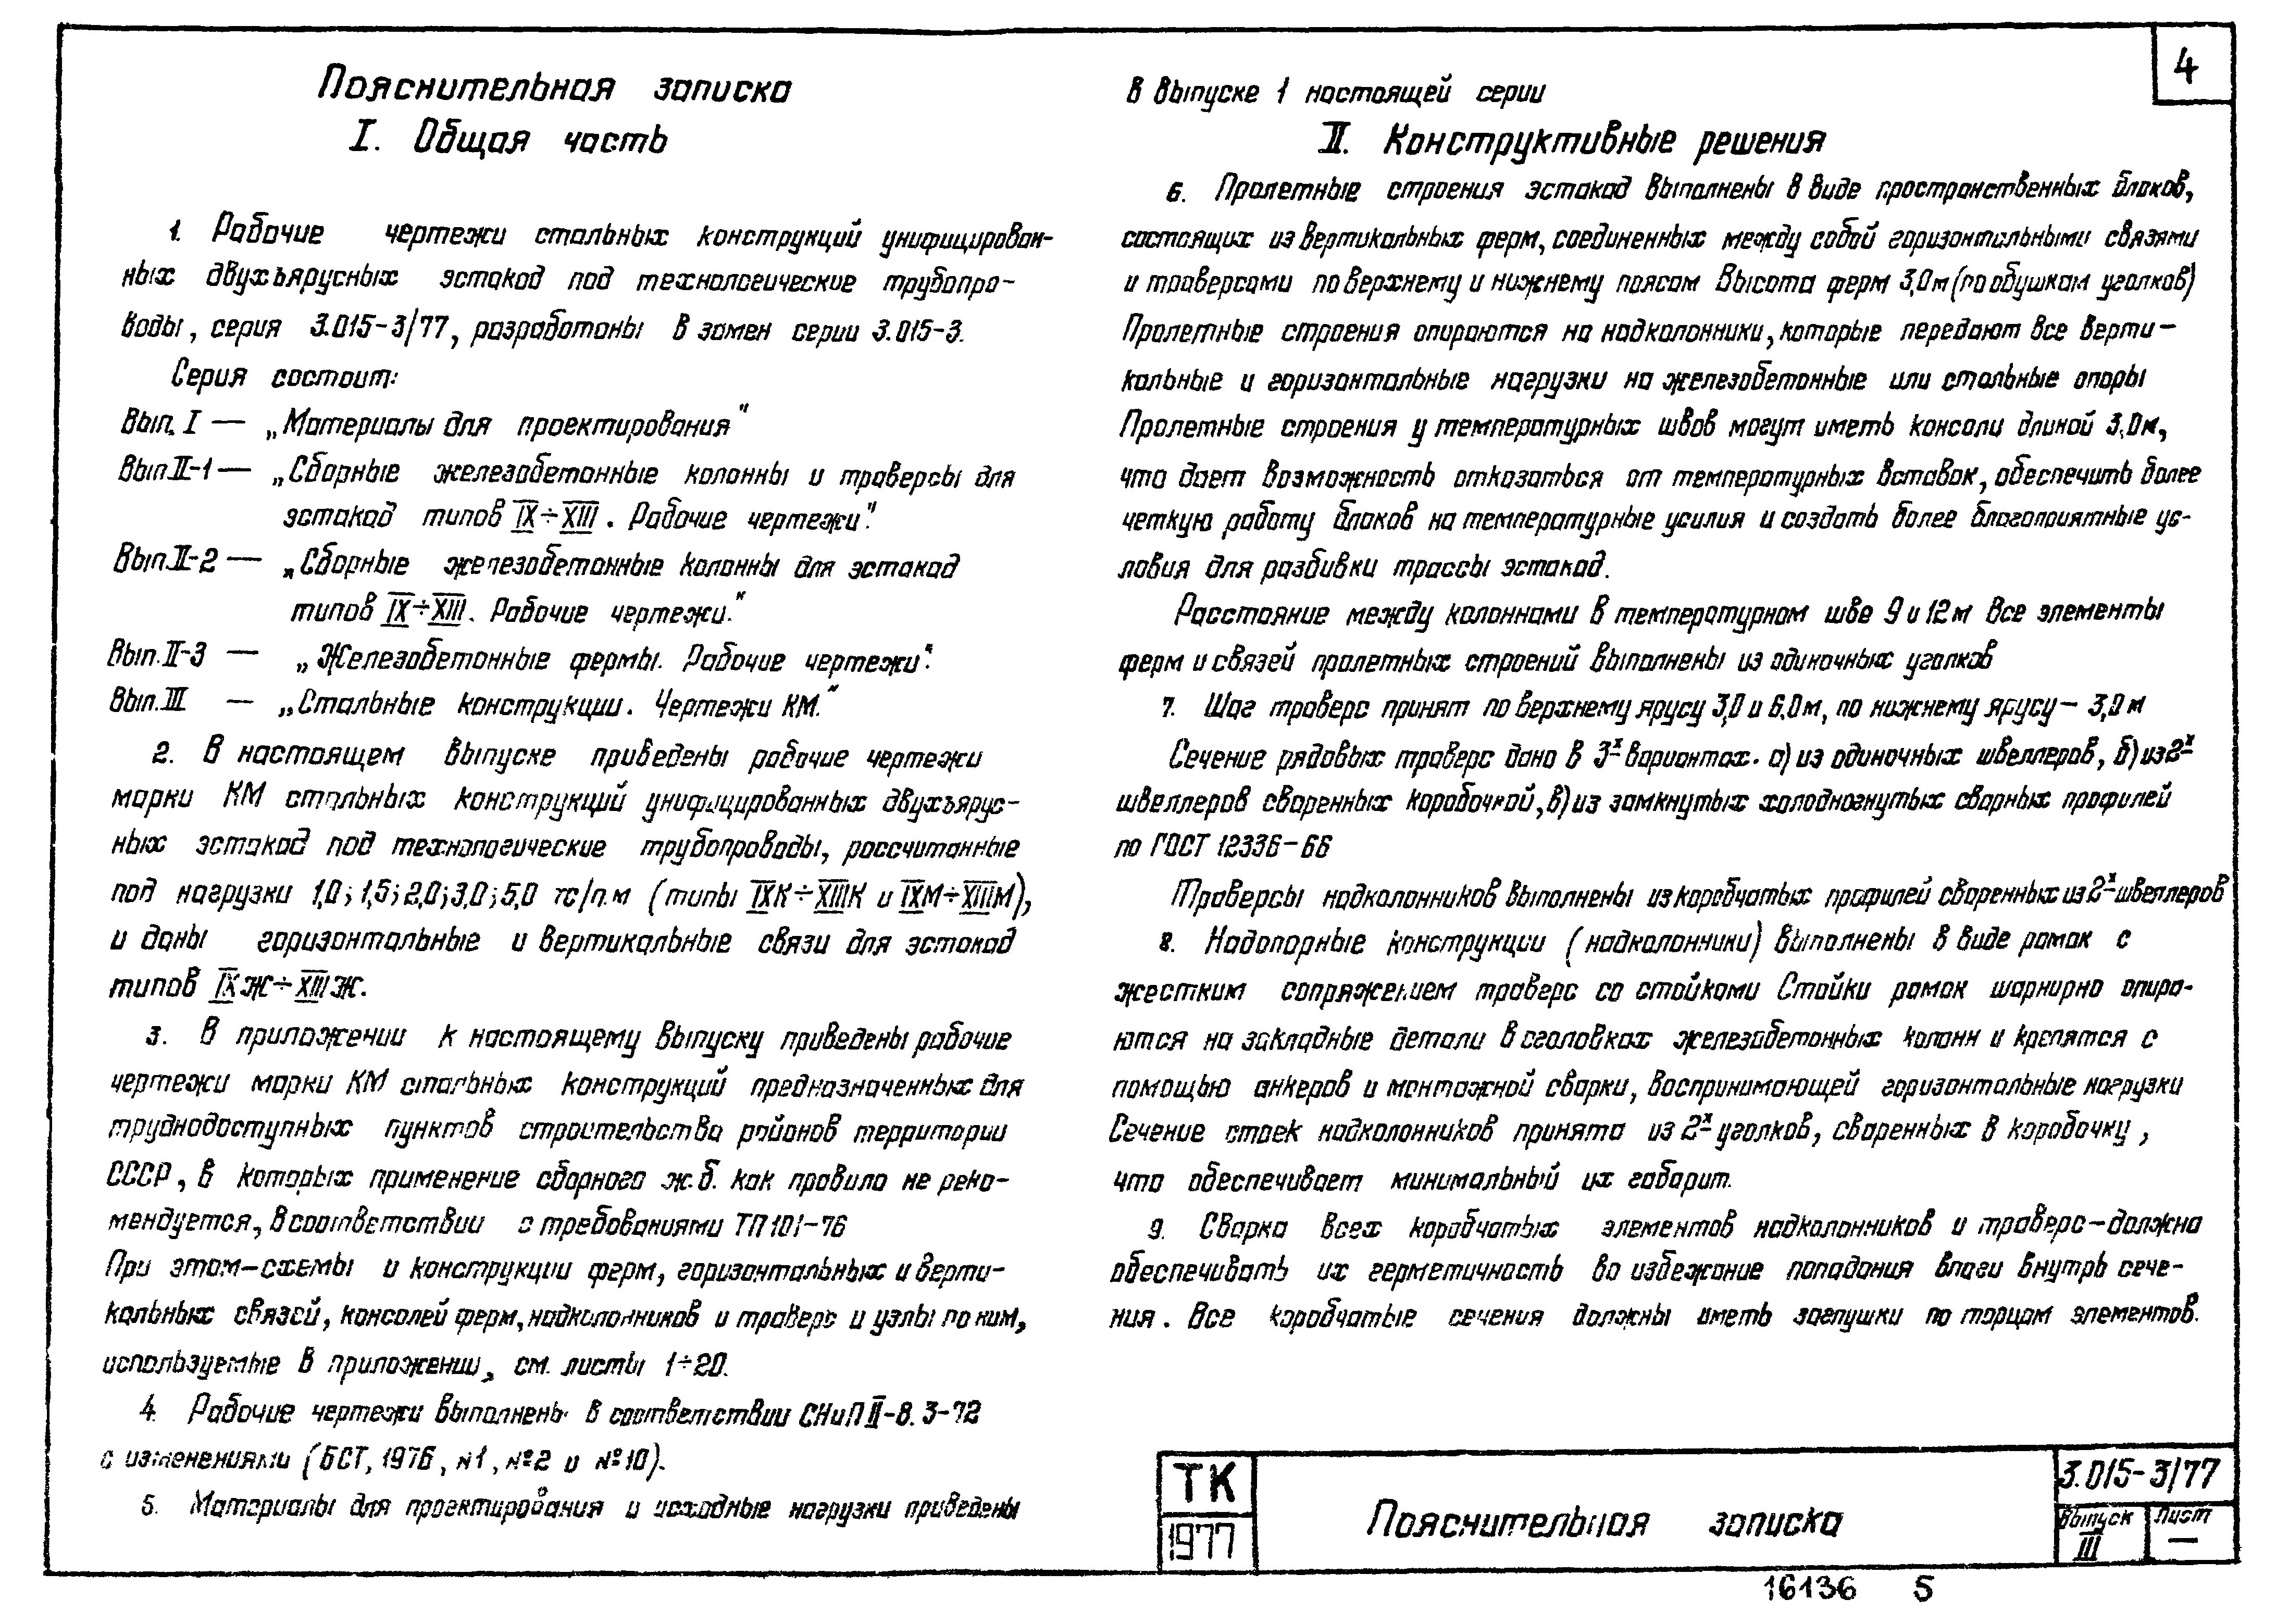 4
Пояснительная записка
I. Общая часть
1. Рабочие чертежи стальных конструкций унифицирован-
ных двухъярусных эстакад под технологические трубопро-
воды, серия 3.015-3/77, разработаны в замен серии 3.015-3.
Серия состоит:
Вып. I — „Материалы для проектирования"
Вып. II-1 — „Сборные железобетонные колонны и траверсы для
эстакад типов IX÷XIII. Рабочие чертежи".
Вып. II-2 — „Сборные железобетонные колонны для эстакад
типов IX÷XIII. Рабочие чертежи."
Вып. II-3 — „Железобетонные фермы. Рабочие чертежи".
Вып. III — „Стальные конструкции. Чертежи КМ."
2. В настоящем выпуске приведены рабочие чертежи
марки КМ стальных конструкций унифицированных двухъярус-
ных эстакад под технологические трубопроводы, рассчитанные
под нагрузки 1,0; 1,5; 2,0; 3,0; 5,0 тс/п.м (типы IXК÷XIIIК и IXМ÷XIIIМ),
и даны горизонтальные и вертикальные связи для эстакад
типов IXЖ÷XIIIЖ.
3. В приложении к настоящему выпуску приведены рабочие
чертежи марки КМ стальных конструкций предназначенных для
труднодоступных пунктов строительства районов территории
СССР, в которых применение сборного ж.б. как правило не реко-
мендуется, в соответствии с требованиями ТП 101-76
При этом-схемы и конструкции ферм, горизонтальных и верти-
кальных связей, консолей ферм, надколонников и траверс и узлы по ним,
используемые в приложении, см. листы 1÷20.
4. Рабочие чертежи выполнены в соответствии СНиП II-В.3-72
с изменениями (БСТ, 1976, №1, №2 и №10).
5. Материалы для проектирования и исходные нагрузки приведены
в выпуске 1 настоящей серии
II. Конструктивные решения
6. Пролетные строения эстакад выполнены в виде пространственных блоков,
состоящих из вертикальных ферм, соединенных между собой горизонтальными связями
и траверсами по верхнему и нижнему поясам Высота ферм 3,0м (по обушкам уголков)
Пролетные строения опираются на надколонники, которые передают все верти-
кальные и горизонтальные нагрузки на железобетонные или стальные опоры
Пролетные строения у температурных швов могут иметь консоли длиной 3,0м,
что дает возможность отказаться от температурных вставок, обеспечить более
четкую работу блоков на температурные усилия и создать более благоприятные ус-
ловия для разбивки трассы эстакад.
Расстояние между колоннами в температурном шве 9 и 12м Все элементы
ферм и связей пролетных строений выполнены из одиночных уголков
7. Шаг траверс принят по верхнему ярусу 3,0 и 6,0м, по нижнему ярусу - 3,0м
Сечение рядовых траверс дано в 3х вариантах. а) из одиночных швеллеров, б) из 2х
швеллеров сваренных коробочкой, в) из замкнутых холодногнутых сварных профилей
по ГОСТ 12336-66
Траверсы надколонников выполнены из коробчатых профилей сваренных из 2х швеллеров
8. Надопорные конструкции (надколонники) выполнены в виде рамок с
жестким сопряжением траверс со стойками Стойки рамок шарнирно опира-
ются на закладные детали в оголовках железобетонных колонн и крепятся с
помощью анкеров и монтажной сварки, воспринимающей горизонтальные нагрузки
Сечение стоек надколонников принято из 2х уголков, сваренных в коробочку,
что обеспечивает минимальный их габарит.
9. Сварка всех коробчатых элементов надколонников и траверс-должна
обеспечивать их герметичность во избежание попадания влаги внутрь сече-
ния. Все коробчатые сечения должны иметь заглушки по торцам элементов.
ТК
1977
Пояснительная записка
3.015-3/77
Выпуск III
Лист —
16136 5